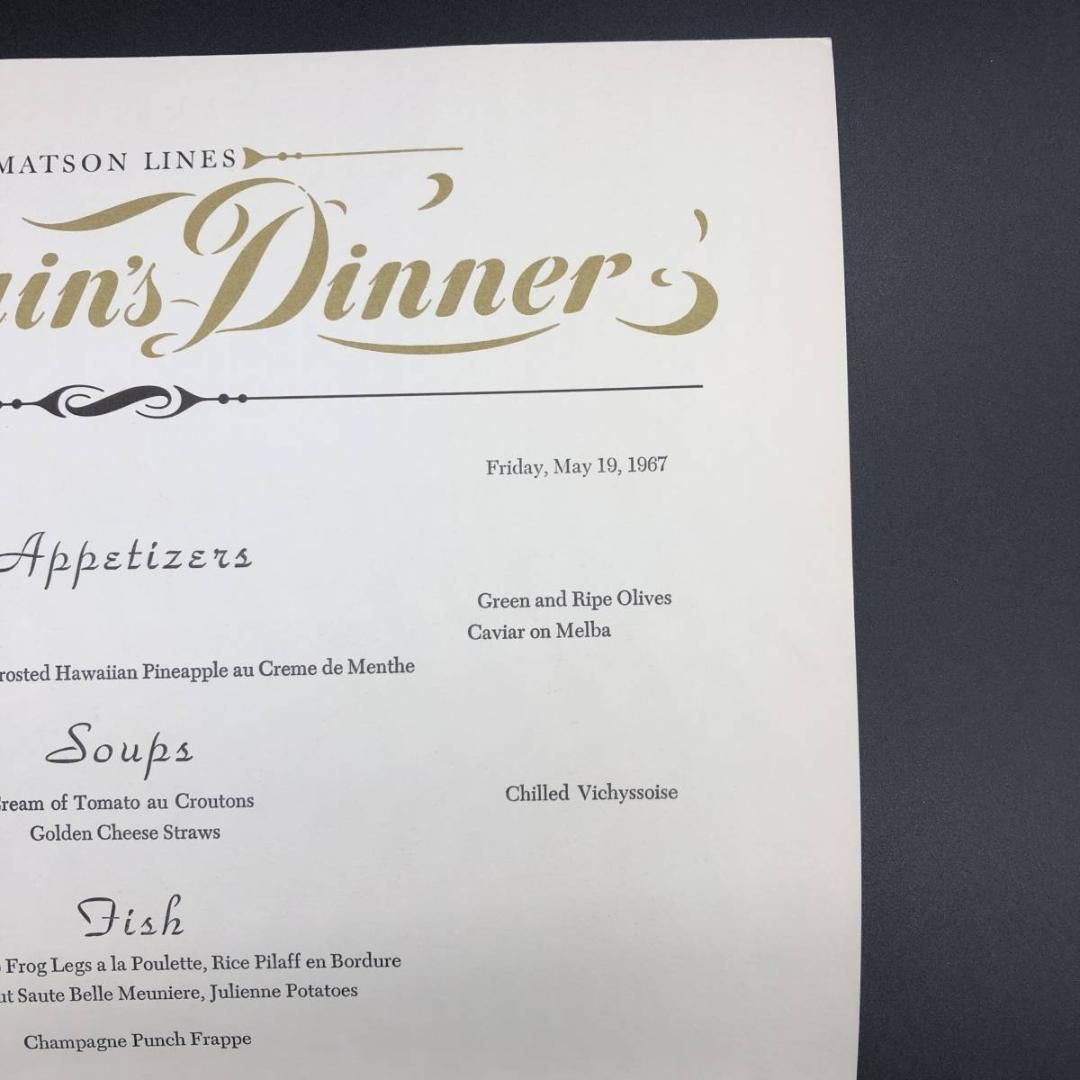 MATSON LINES
Dinner
Friday, May 19, 1967
Appetizers
Green and Ripe Olives
Caviar on Melba
Hawaiian Pineapple au Creme de Menthe
Soups
of Tomato au Croutons
Chilled Vichyssoise
Golden Cheese Straws
Fish
Frog Legs a la Poulette, Rice Pilaff en Bordure
Saute Belle Meuniere, Julienne Potatoes
Champagne Punch Frappe